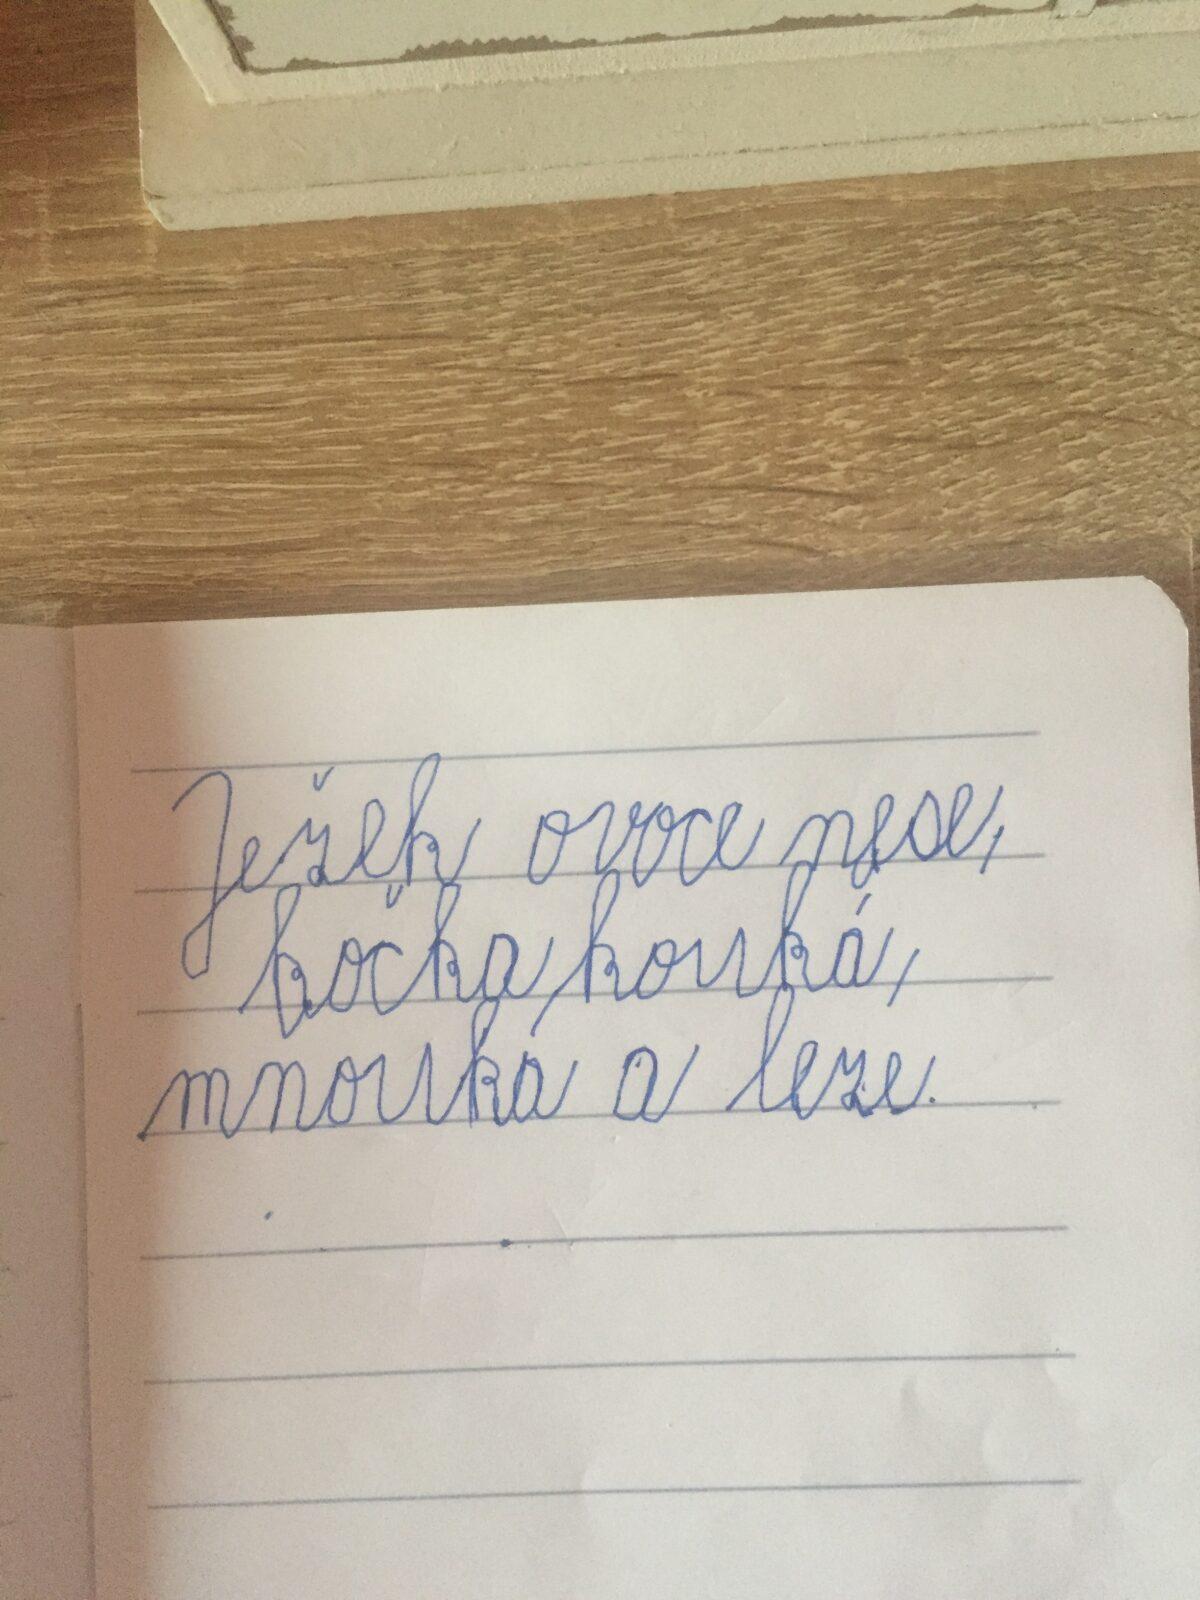 Ježek ovoce nese,
kočka, kouká,
mňouká a leze.